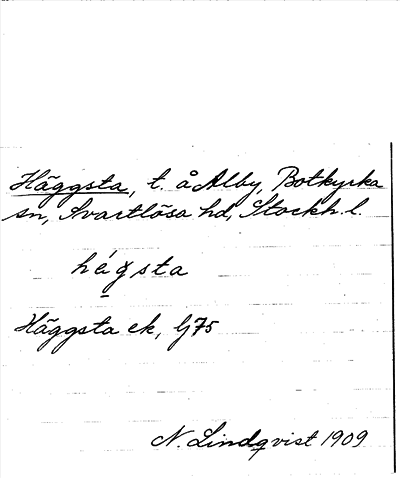 Häggsta, t. å Alby, Botkyrka
sn, Svartlösa hd, Stockh. l.
hégsta
Häggsta ek, Gj75
N. Lindqvist 1909